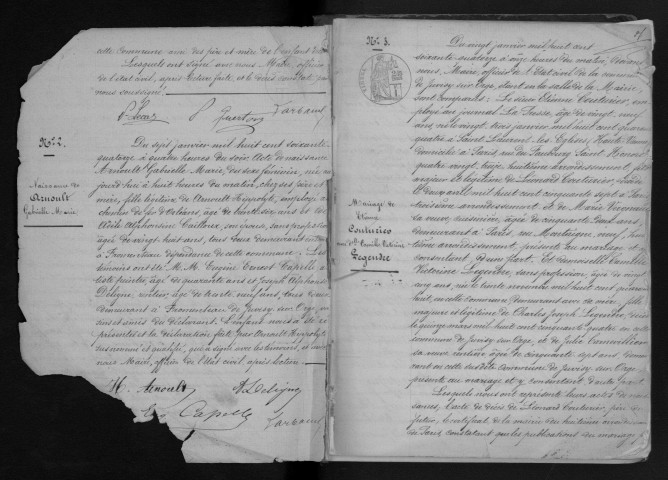 cette commune ami des père et mère de l'enfant
Lesquels ont signé avec nous Maire officier
de l'état civil, après lecture faite, et le décès constaté par
nous soussigné.
Tarbane
N° 2.
Naissance de
Arnoult
Gabrielle Marie
Du sept janvier mil huit cent soixante
quatorze à quatre heures du soir Acte de naissance
de Arnoult Gabrielle Marie, du sexe féminin, née ce
jourd'hui à huit heures du matin, chez ses père et
mère, fille légitime de Arnoult Hippolyte, employé au
chemin de fer d'Orléans, âgé de trente six ans et de
Alphonsine Cailloux, son épouse, sans profession
âgée de vingt huit ans, tous deux demeurant
à Fromenteau dépendance de cette commune. Les
témoins ont été M.M. Eugène Ernest Capelle
peintre, âgé de quarante ans et Joseph Alphonse
Deligne, âgé de trente neuf ans, tous deux
demeurant à Fromenteau de Juvisy sur Orge
et amis du déclarant. L'enfant nous a été
présenté et la déclaration faite par Arnoult Hippolyte
susnommé et qualifié, qui a signé avec les témoins, et avec
nous Maire, officier de l'état civil après lecture.
H. Arnoult
A Deligne
Capelle
Tarbane
N° 3.
Mariage de
Etienne
Couturier
avec Dlle Camille Victorine
Legendre
Du vingt janvier mil huit cent
soixante quatorze à onze heures du matin, devant
nous, Maire, officier de l'Etat civil de la commune
de Juvisy sur Orge, étant en la salle de la Mairie,
sont comparus : Le sieur Etienne Couturier, em
ployé au journal La Presse, âgé de vingt neuf
ans, né le vingt trois janvier mil huit cent quarante
quatre à Saint Laurent les Eglises, Haute Vienne
domicilié à Paris rue du Faubourg Saint Honoré
quatre vingt, huitième arrondissement, fils
majeur et légitime de Léonard Couturier,
mil huit cent cinquante sept à Paris
troisième arrondissement et de Marie
sa veuve, cuisinière, âgée de cinquante ans
demeurant à Paris, rue Montaigne, neuf, huit
ième arrondissement, présente au mariage et y
consentant d'une part. Et demoiselle Camille
Victorine Legendre, sans profession, âgée de vingt
cinq ans, née le trente novembre mil huit cent quarante
huit, en cette commune demeurant avec sa mère, fille
majeure et légitime de Charles Joseph Legendre, décédé
le quinze mars mil huit cent cinquante quatre en cette
commune de Juvisy sur Orge, et de Julie
sa veuve rentière âgée de cinquante sept ans demeu
rant en cette susdite commune de Juvisy sur Orge,
présente au mariage et y consentant d'autre part.
Lesquels nous ont représenté leurs actes de nais
sances, l'acte de décès de Léonard Couturier, père du
futur, le certificat de la mairie du huitième arrondissement
de Paris, constatant que les publications du mariage